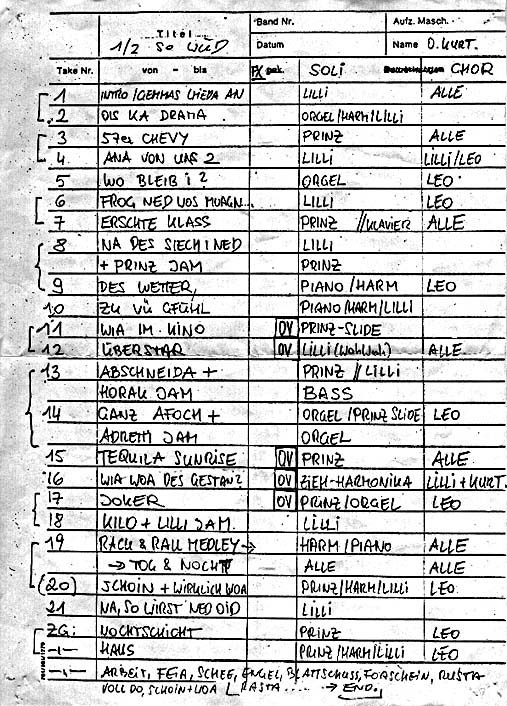 Titel Band Nr. Aufz. Masch.
1/2 SO WÜD Datum Name O. KURT.
Take Nr. von - bis FX SOLI CHOR
1 INTRO/GEMMAS CHEDA AN LILLI ALLE
2 OIS KA DRAMA ORGEL/HARM/LILLI
3 57er CHEVY PRINZ ALLE
4 ANA VON UNS 2 LILLI LILLI/LEO
5 WO BLEIB i? ORGEL LEO
6 FROG NED VOS MORGN... LILLI LEO
7 ERSCHTE KLASS PRINZ //KLAVIER ALLE
8 NA DES SIECH I NED LILLI
+ PRINZ JAM PRINZ
9 DES WETTER, PIANO/HARM LEO
10 ZU VÜ GFÜHL PIANO/HARM/LILLI
11 WIA IM KINO OV PRINZ-SLIDE
12 ÜBERSTAR OV LILLI (WahWah) ALLE
13 ABSCHNEIDA + PRINZ // LILLI
HORAK JAM BASS
14 GANZ AFOCH + ORGEL/PRINZ SLIDE LEO
ADRETTI JAM ORGEL
15 TEQUILA SUNRISE OV PRINZ ALLE
16 WIA WOA DES GESTAN? OV ZIEH-HARMONIKA LILLI + KURT.
17 JOKER OV PRINZ/ORGEL LEO
18 KILO + LILLI JAM. LILLI
19 RACK & RALL MEDLEY → HARM/PIANO ALLE
→ TOG & NOCHT ALLE ALLE
(20) SCHOIN + WIRKLICH WOA PRINZ/HARM/LILLI LEO
21 NA, SO WIRST NED OID LILLI
ZG: NOCHTSCHICHT PRINZ LEO
-"- HAUS PRINZ/HARM/LILLI LEO
-"- ARBEIT, FEIA, SCHEE, ENGEL, BLATTSCHUSS, FORSCHEIN, RUSTA
VOLL DO, SCHOIN + WOA RASTA..... → END.